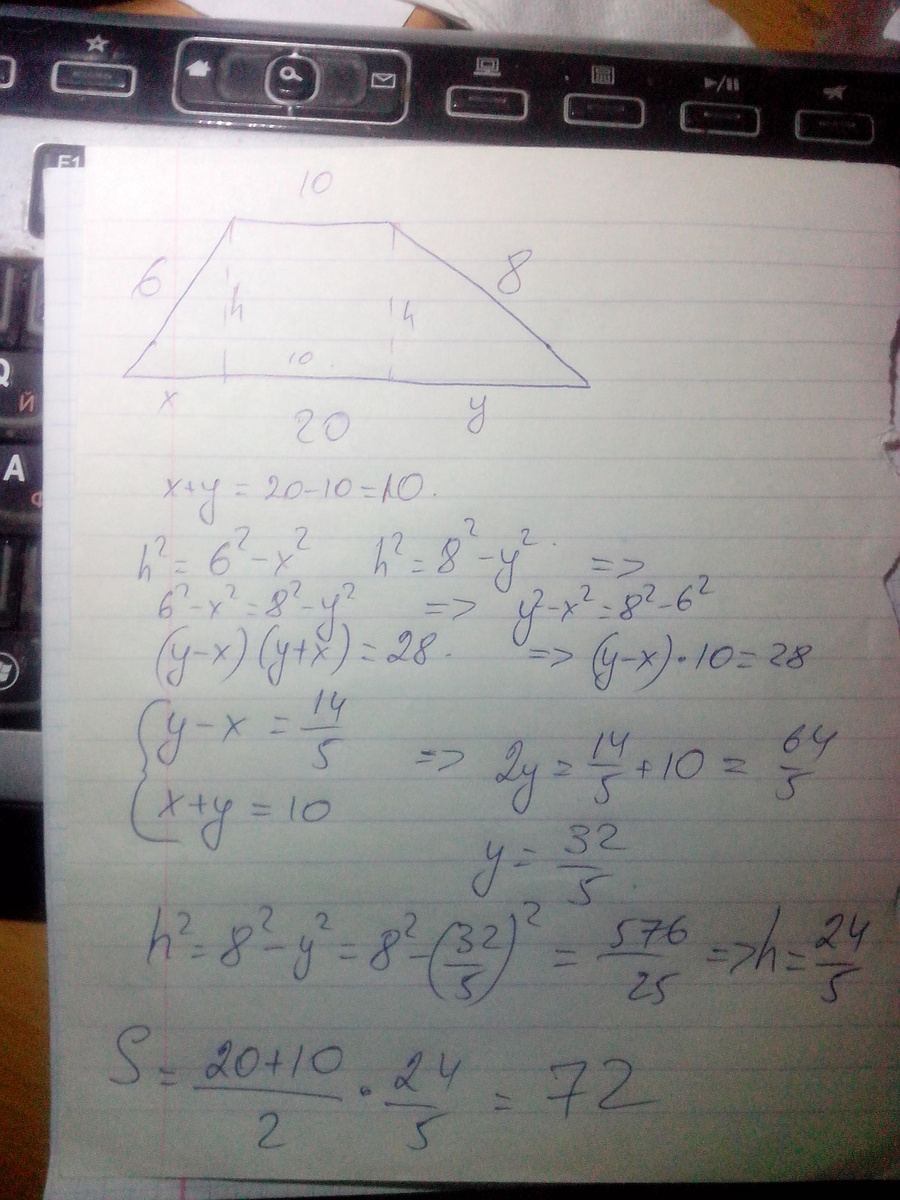 F1
10
6
8
h
h
10
x
y
20
Q
Й
A
Ф
x+y = 20-10=10.
h² = 6² - x² h² = 8² - y² =>
6² - x² = 8² - y² => y² - x² = 8² - 6²
(y-x)(y+x) = 28. => (y-x)·10=28
{ y - x = 14/5 => 2y = 14/5 + 10 = 64/5
x+y = 10
y = 32/5.
h² = 8² - y² = 8² - (32/5)² = 576/25 => h = 24/5
S = (20+10)/2 · 24/5 = 72